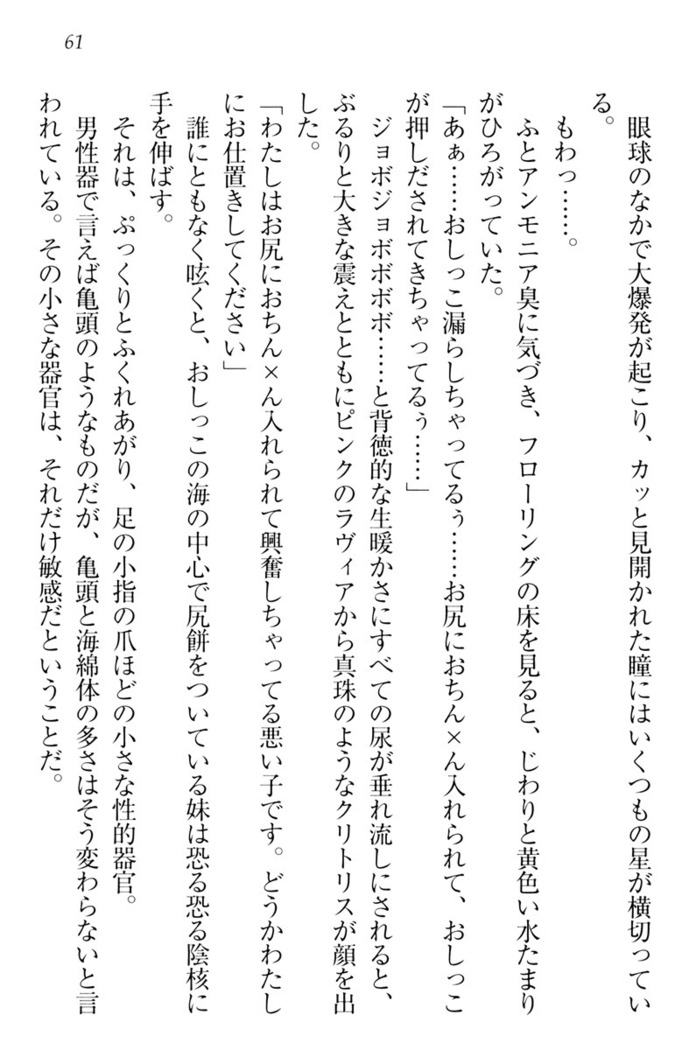 61
眼球のなかで大爆発が起こり、カッと見開かれた瞳にはいくつもの星が横切ってい
る。
もわっ……。
ふとアンモニア臭に気づき、フローリングの床を見ると、じわりと黄色い水たまり
がひろがっていた。
「あぁ……おしっこ漏らしちゃってるぅ……お尻におちん×ん入れられて、おしっこ
が押しだされてきちゃってるぅ……」
ジョボジョボボボボ……と背徳的な生暖かさにすべての尿が垂れ流しにされると、
ぶるりと大きな震えとともにピンクのラヴィアから真珠のようなクリトリスが顔を出
した。
「わたしはお尻におちん×ん入れられて興奮しちゃってる悪い子です。どうかわたし
にお仕置きしてください」
誰にともなく呟くと、おしっこの海の中心で尻餅をついている妹は恐る恐る陰核に
手を伸ばす。
それは、ぷっくりとふくれあがり、足の小指の爪ほどの小さな性的器官。
男性器で言えば亀頭のようなものだが、亀頭と海綿体の多さはそう変わらないと言
われている。その小さな器官は、それだけ敏感だということだ。